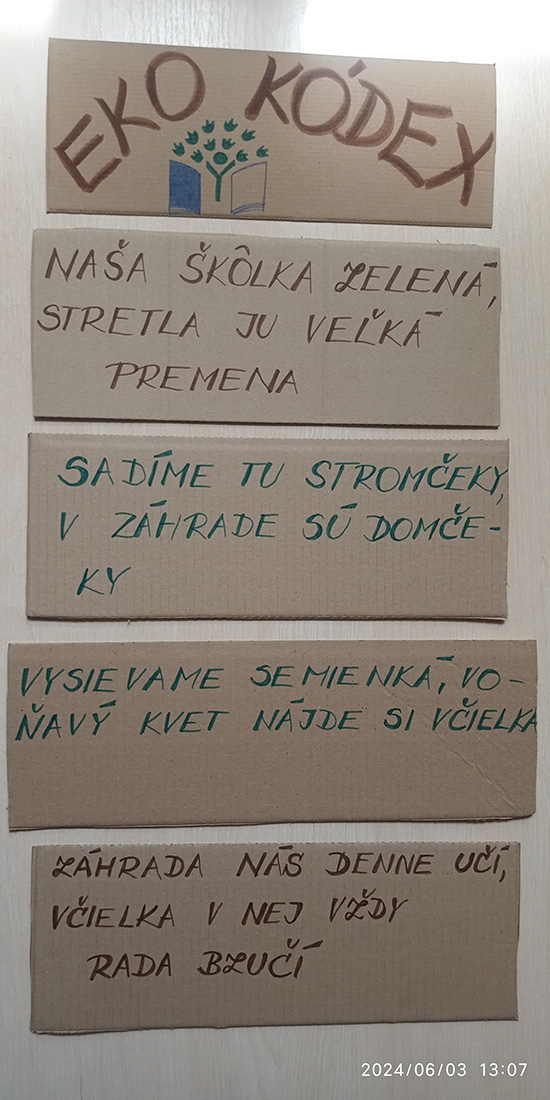 EKO KÓDEX
NAŠA ŠKÔLKA ZELENÁ,
STRETLA JU VEĽKÁ
PREMENA
SADÍME TU STROMČEKY,
V ZÁHRADE SÚ DOMČE-
KY
VYSIEVAME SEMIENKÁ, VO-
ŇAVÝ KVET NÁJDE SI VČIELKA
ZÁHRADA NÁS DENNE UČÍ,
VČIELKA V NEJ VŽDY
RADA BZUČÍ
2024/06/03 13:07